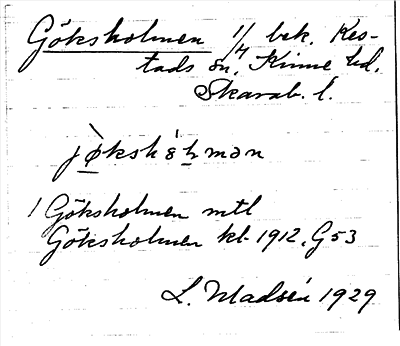 Göksholmen 1/4 bek. Kes-
tads sn, Kinne hd.
Skarab. l.
jø̀kshɵ́lmən
1 Göksholmen mtl
Göksholmen kb 1912, G53
L. Madsén 1929